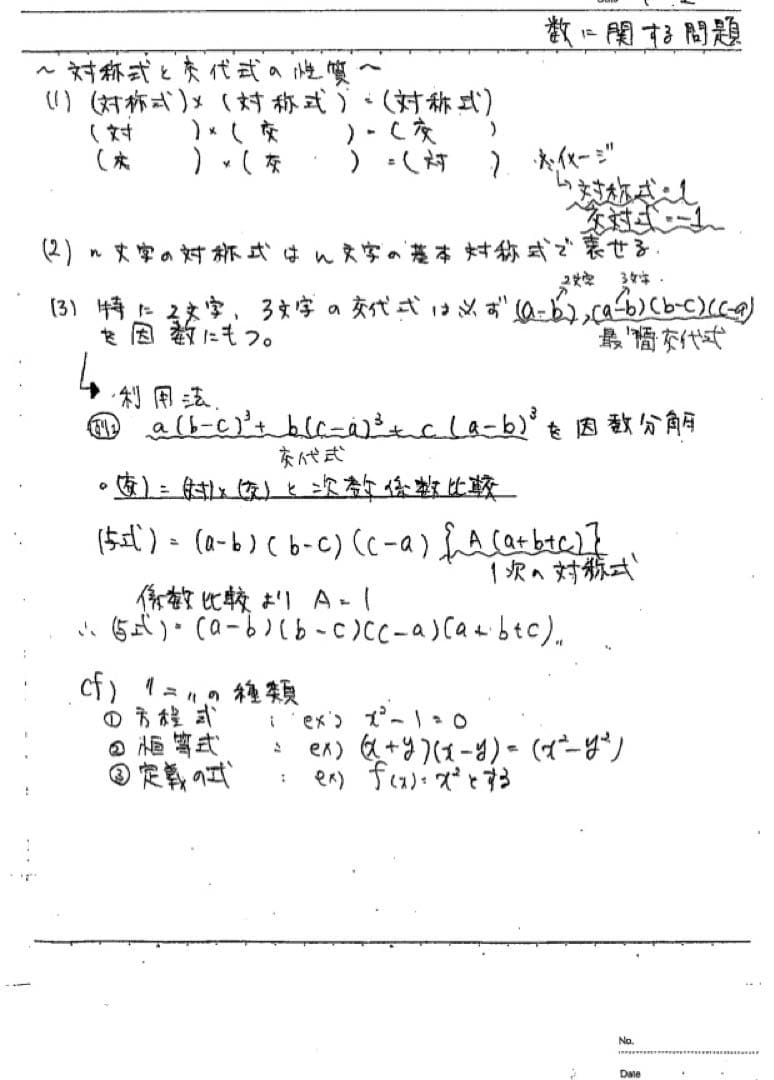 数に関する問題
~対称式と交代式の性質~
(1) (対称式)×(対称式)=(対称式)
(対　　)×(交　　)=(交　　)
(交　　)×(交　　)=(対　　) ※イメージ
↳対称式=1
交対式=-1
(2) n文字の対称式はn文字の基本対称式で表せる.
2文字 3文字
(3) 特に2文字, 3文字の交代式は必ず(a-b),(a-b)(b-c)(c-a)
を因数にもつ。 最簡交代式
・利用法
例 a(b-c)³+b(c-a)³+c(a-b)³を因数分解
交代式
・(交)=(対)×(交)と次数係数比較
(与式)=(a-b)(b-c)(c-a){A(a+b+c)}
1次の対称式
係数比較よりA=1
∴(与式)=(a-b)(b-c)(c-a)(a+b+c)〟
cf) "="の種類
① 方程式 : ex) x²-1=0
② 恒等式 : ex) (x+y)(x-y)=(x²-y²)
③ 定義の式 : ex) f(x)=x²とする
No.
Date